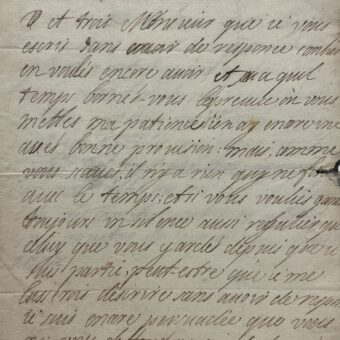 et trois Monsieur que ie vous
escris sans auoir de responce combien
en voulés encore auoir et a quel
temps bornés vous lepreuue ou vous
mettes ma patience ien ay encore une
assés bonne prouision: mais, comme
vous saués, il n'y a rien qui ne
auec le temps, et si vous voulés
toujours un silence aussi regulier que
celuy que vous gardés depuis que ie
suis partie peut-estre que ie me
d'escrire sans auoir de
ie suis encore persuadée que vous